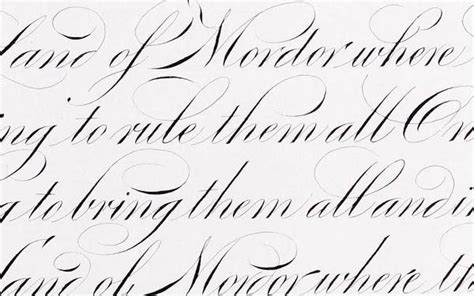 Land of Mordor where
ng to rule them all On
g to bring them all and in
Land of Mordor where th